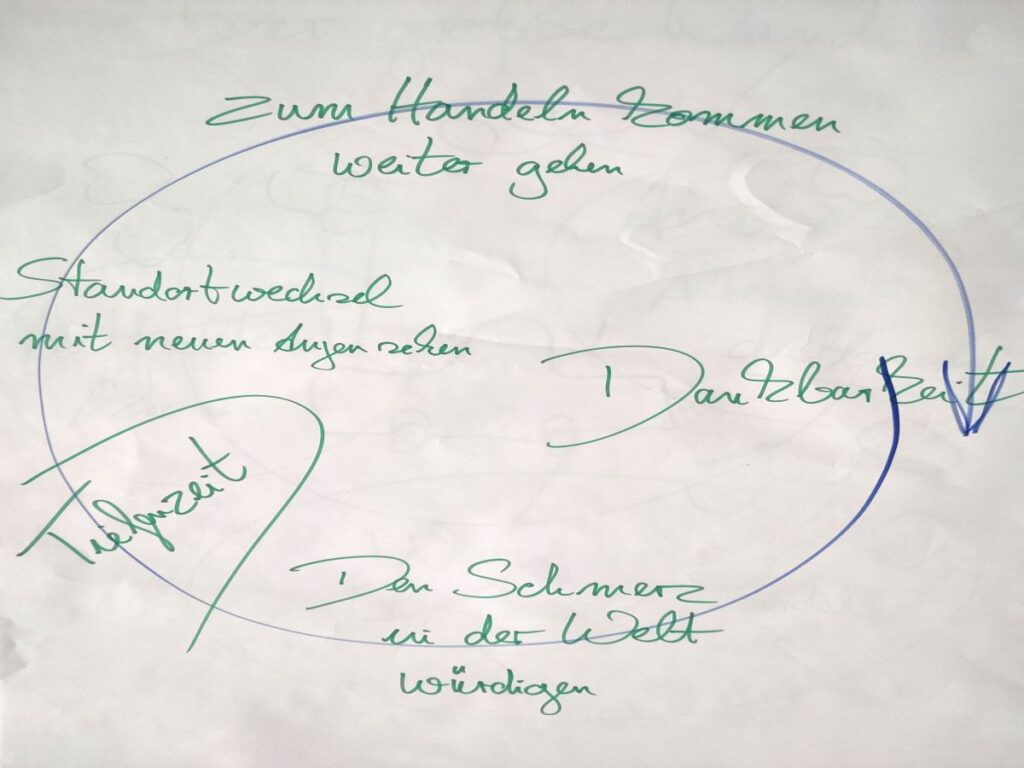 zum Handeln kommen
weiter gehen
Standortwechsel
mit neuen Augen sehen
Dankbarkeit
Tiefenzeit
Den Schmerz
in der Welt
würdigen